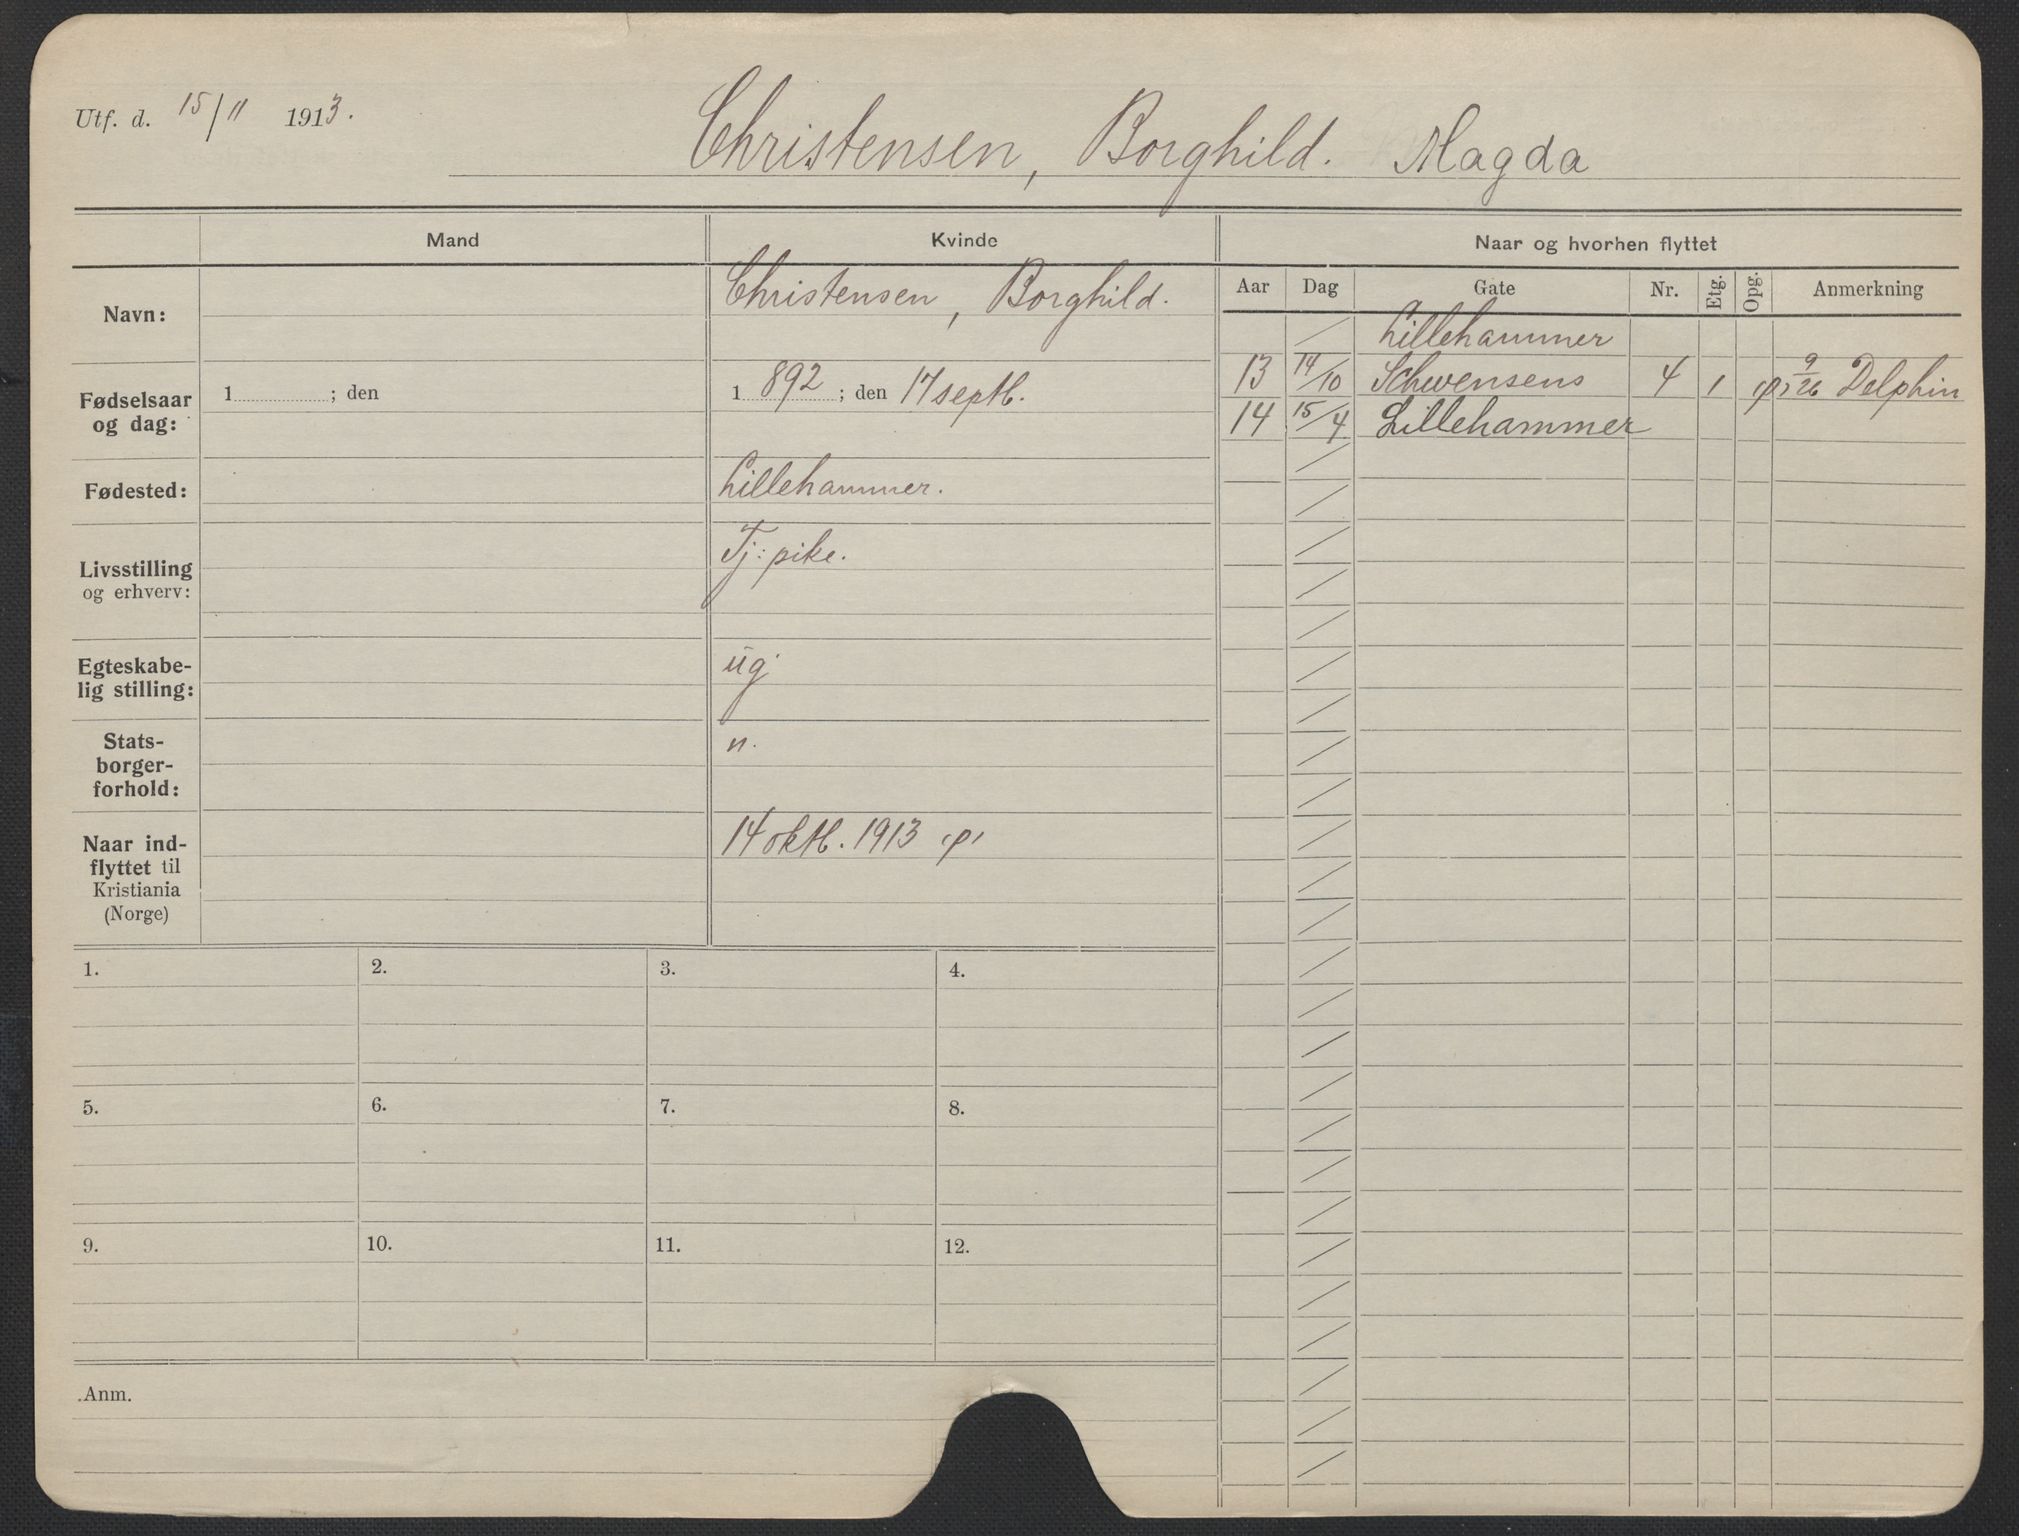 Utf. d. 15/11 1913.
Christensen, Borghild. Magda
Mand
Kvinde
Naar og hvorhen flyttet
Navn:
Christensen, Borghild.
Fødselsaar og dag:
1 ; den
1892 ; den 17 septb.
Fødested:
Lillehammer.
Livsstilling og erhverv:
Tj: pike.
Egteskabe-
lig stilling:
ug
Stats-
borger-
forhold:
n.
Naar ind-
flyttet til
Kristiania
(Norge)
14 oktb. 1913
Aar Dag Gate Nr. Etg. Opg. Anmerkning
/ Lillehammer
13 14/10 Schwensens 4 1 9/26 Delphin
14 15/4 Lillehammer
1. 2. 3. 4.
5. 6. 7. 8.
9. 10. 11. 12.
Anm.